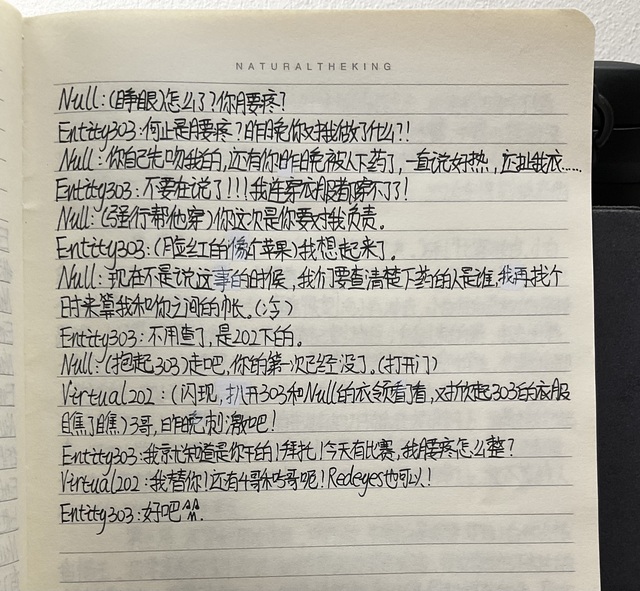 NATURALTHEKING
Null:(睁眼)怎么了?你腰疼?
Entity303:何止是腰疼?昨晚你对我做了什么?!
Null:你自己先吻我的,还有你昨晚被人下药了,一直说好热,还扯我衣……
Entity303:不要在说了!!!我连穿衣服都穿不了!
Null:(强行帮他穿)你这次是你要对我负责。
Entity303:(脸红的像个苹果)我想起来了。
Null:现在不是说这事的时候,我们要查清楚下药的人是谁,我再找个
时来算我和你之间的帐。(冷)
Entity303:不用查了,是202下的。
Null:(抱起303)走吧,你的第一次已经没了。(打开门)
Virtual202:(闪现,扒开303和Null的衣领看了看,对掀起303的衣服
瞧了瞧)3哥,昨晚刺激吧!
Entity303:我就知道是你干的!拜托!今天有比赛,我腰疼怎么整?
Virtual202:我替你!还有4哥和5哥呢!Redeyes也可以!
Entity303:好吧